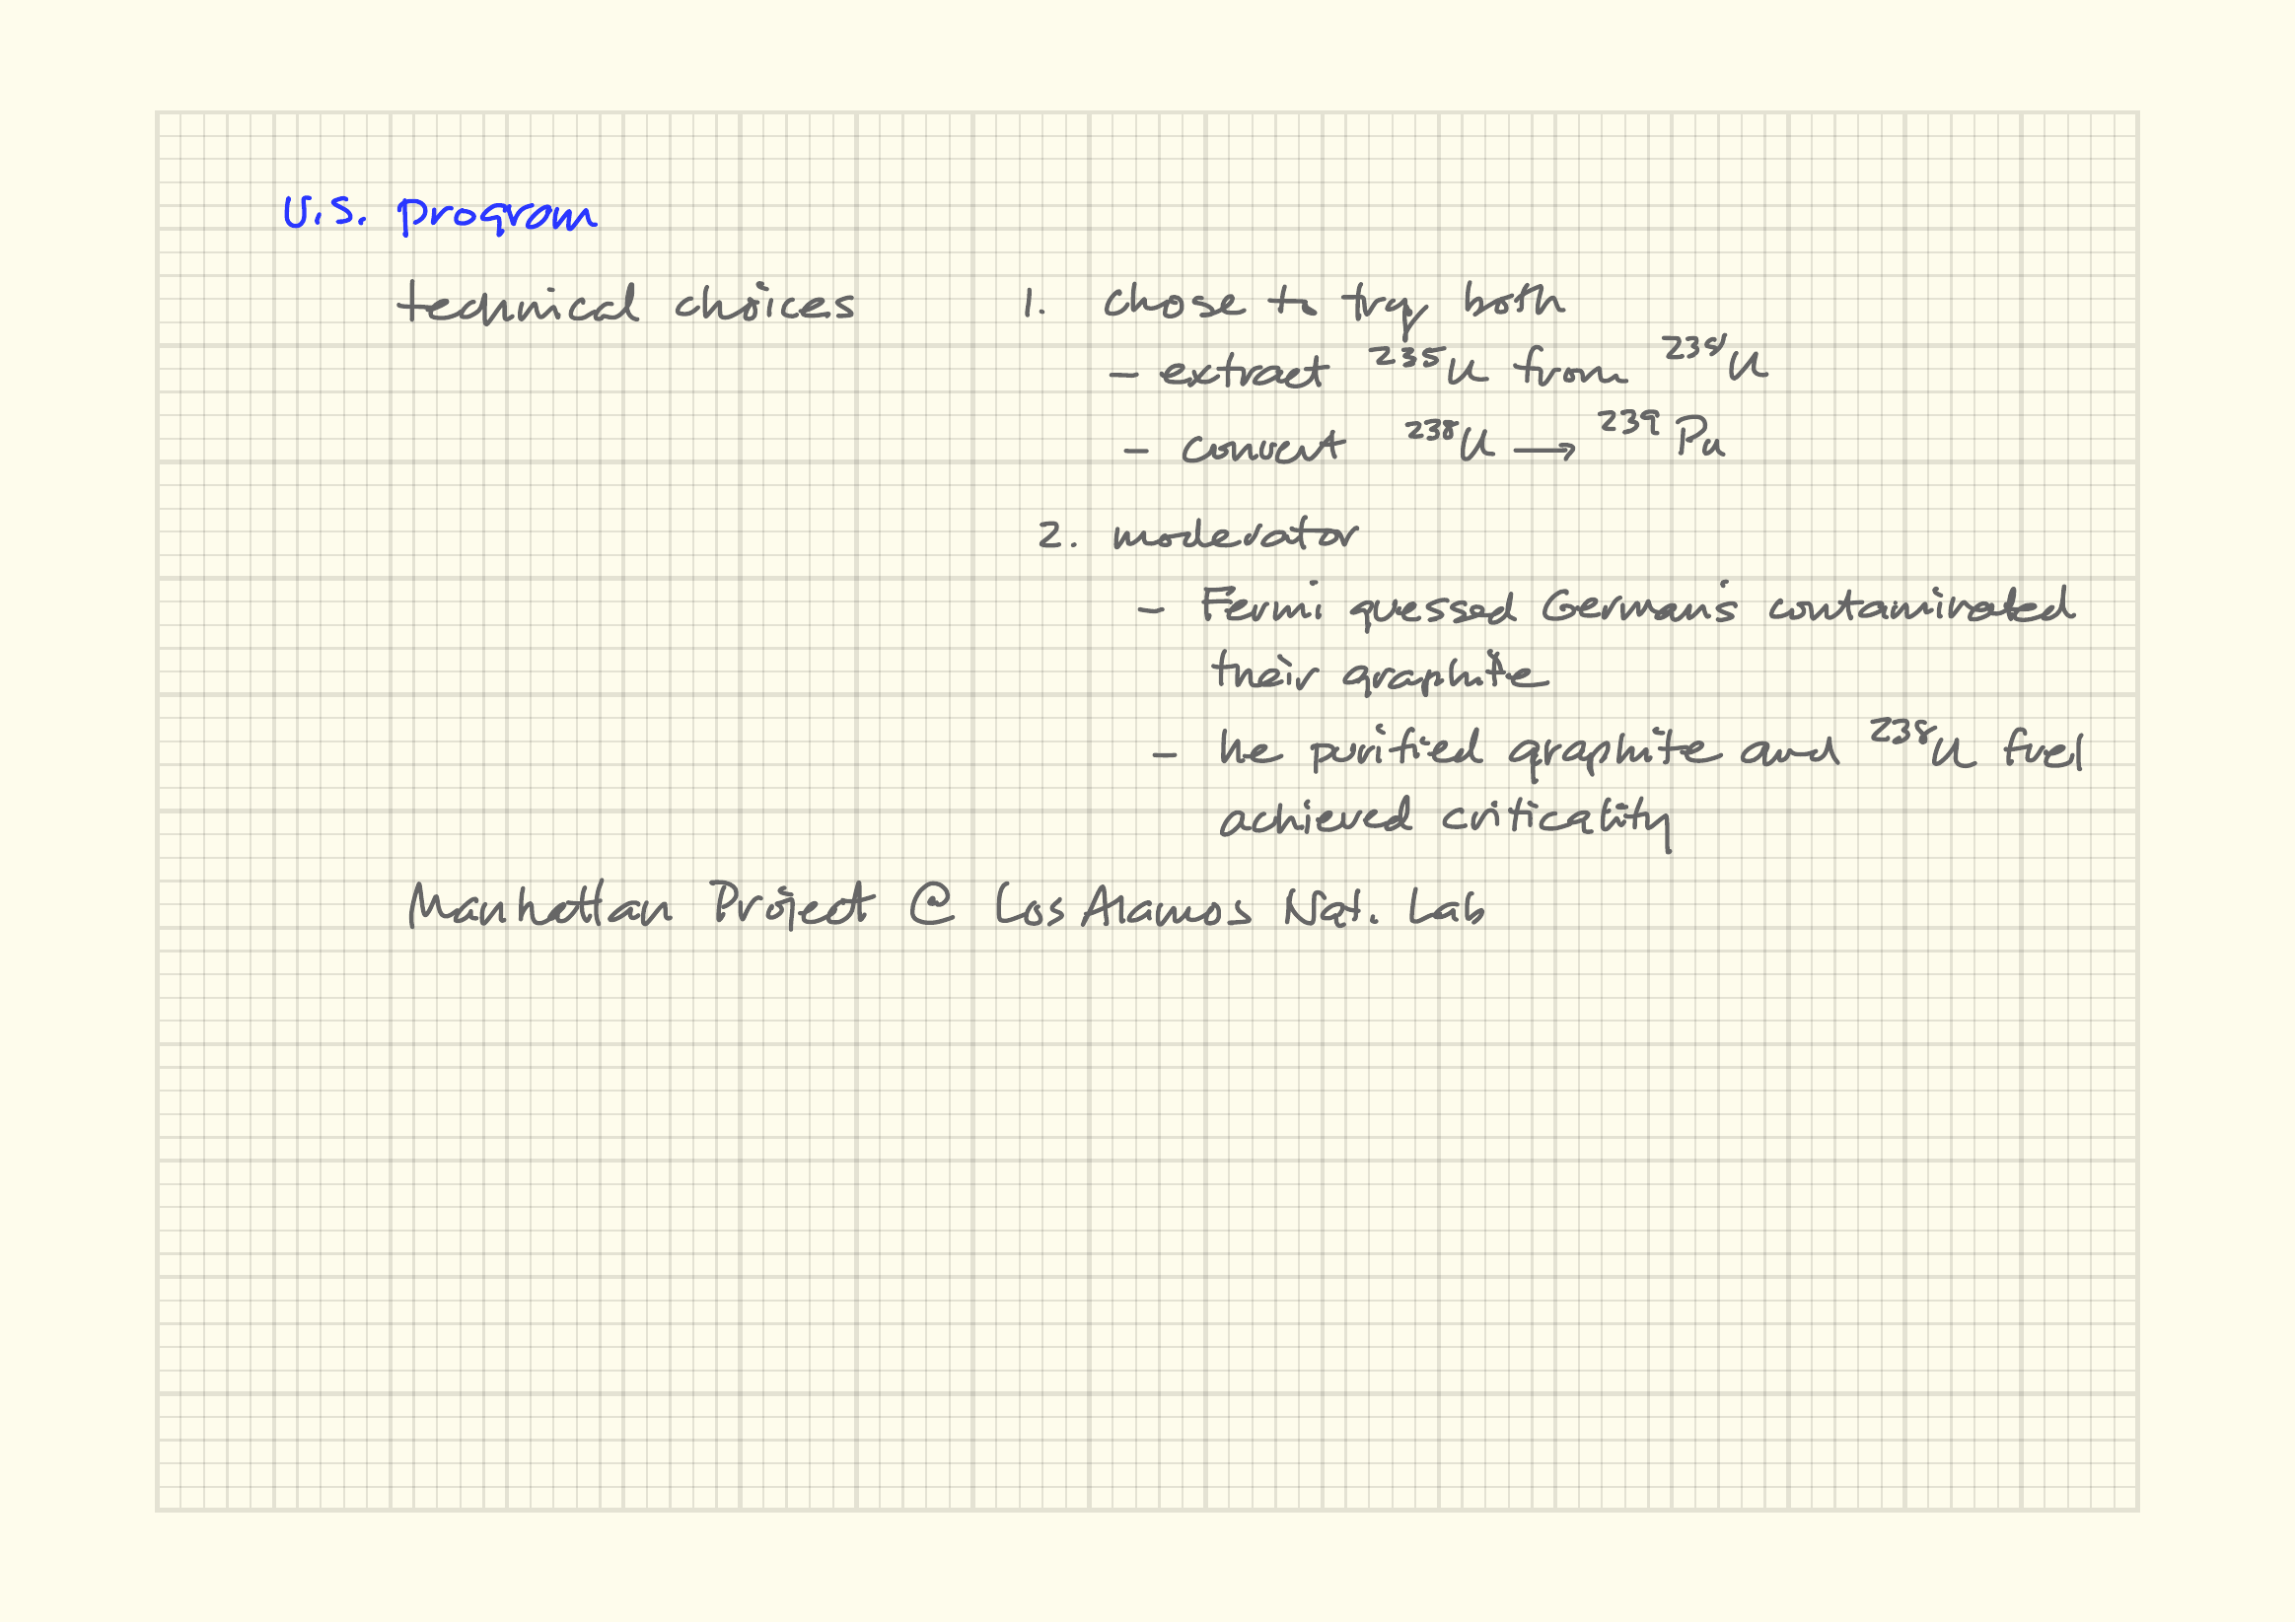 U.S. program
technical choices 1. chose to try both
– extract ²³⁵U from ²³⁸U
– convert ²³⁸U → ²³⁹Pu
2. moderator
– Fermi guessed Germans contaminated
their graphite
– he purified graphite and ²³⁸U fuel
achieved criticality
Manhattan Project @ Los Alamos Nat. Lab